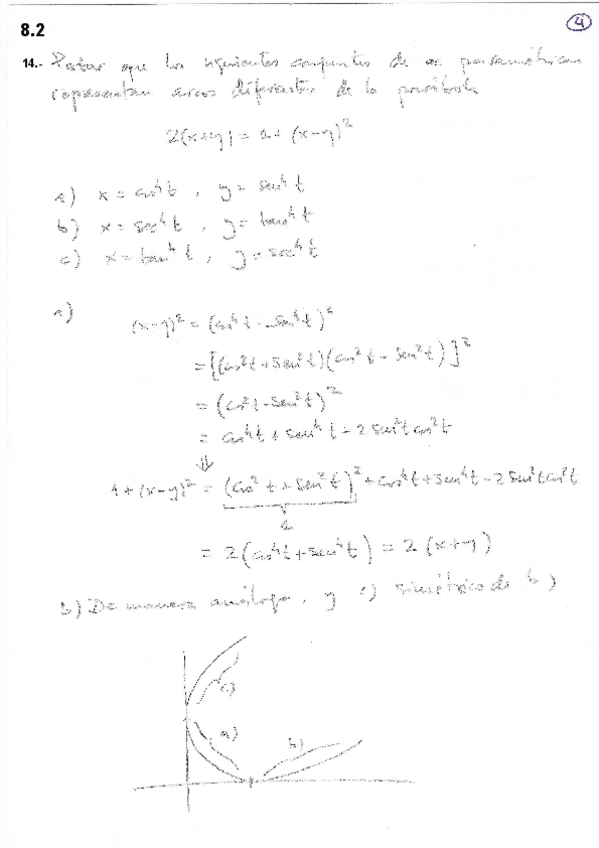 4
8.2
14.- Probar que los siguientes conjuntos de ec paramétricas
representan arcos diferentes de la parábola
2(x+y) = 1 + (x-y)²
a) x = cos⁴t , y = sen⁴t
b) x = sec⁴t , y = tan⁴t
c) x = tan⁴t , y = sec⁴t
a) (x-y)² = (cos⁴t - sen⁴t)²
= [(cos²t + sen²t)(cos²t - sen²t)]²
= (cos²t - sen²t)²
= cos⁴t + sen⁴t - 2 sen²t cos²t
⇓
1 + (x-y)² = (cos²t + sen²t)² + cos⁴t + sen⁴t - 2 sen²t cos²t
1
= 2(cos⁴t + sen⁴t) = 2(x+y)
b) De manera análoga, y c) simétrico de b)
c)
a)
b)